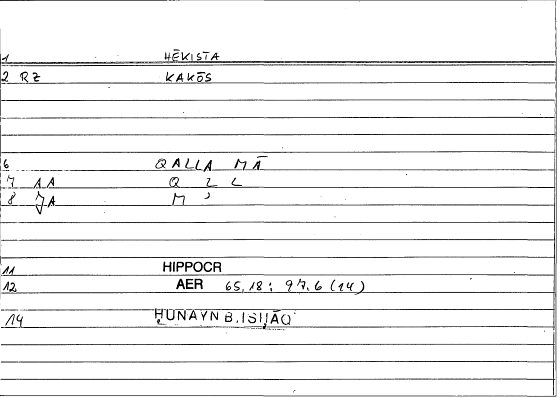 1 HĒKISTA
2 RZ KAKŌS
6 QALLA MĀ
7 1A Q L L
8 JA M ʾ
11 HIPPOCR
12 AER 65,18: 97,6 (14)
14 ḤUNAYN B. ISḤĀQ